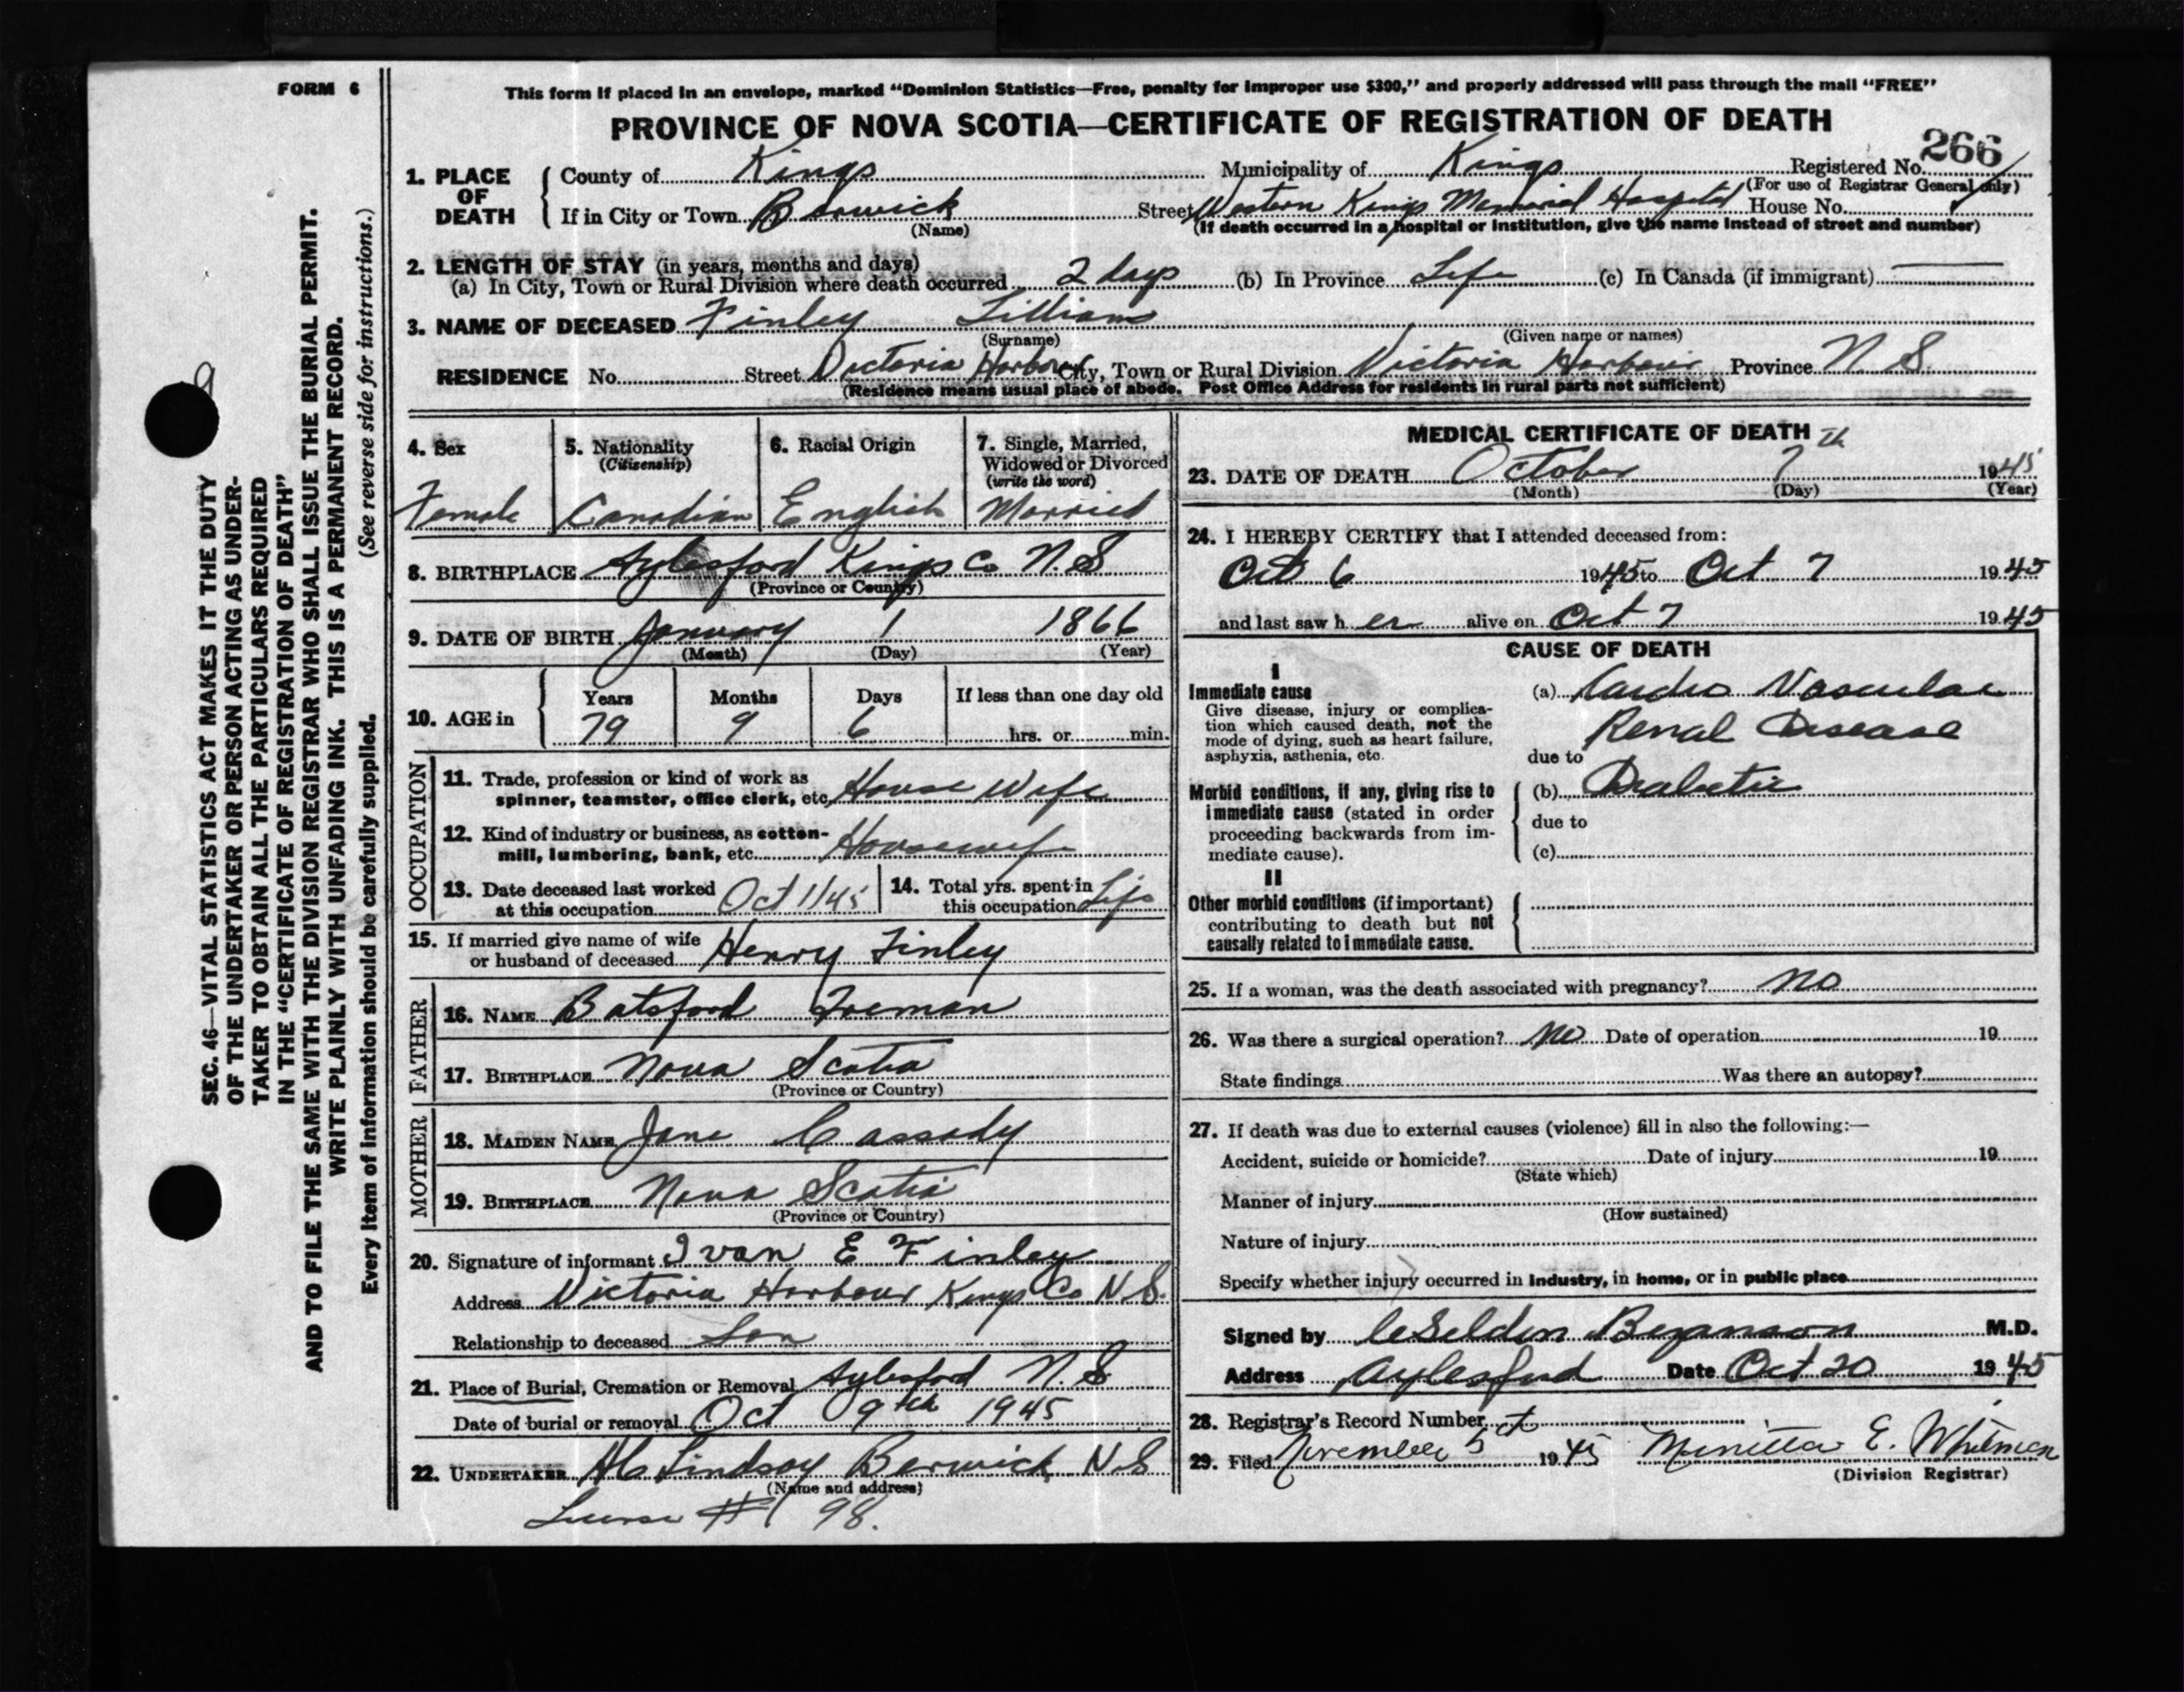 FORM 6
This form if placed in an envelope, marked "Dominion Statistics—Free, penalty for improper use $300," and properly addressed will pass through the mail "FREE"
PROVINCE OF NOVA SCOTIA—CERTIFICATE OF REGISTRATION OF DEATH
266
1. PLACE OF DEATH County of Kings Municipality of Kings Registered No.
(For use of Registrar General only)
If in City or Town Berwick Street Western Kings Memorial Hospital House No.
(Name) (If death occurred in a hospital or institution, give the name instead of street and number)
2. LENGTH OF STAY (in years, months and days)
(a) In City, Town or Rural Division where death occurred 2 days (b) In Province Life (c) In Canada (if immigrant)
3. NAME OF DECEASED Finley Lillian
(Surname) (Given name or names)
RESIDENCE No. Street Victoria Harbour City, Town or Rural Division Victoria Harbour Province N. S.
(Residence means usual place of abode. Post Office Address for residents in rural parts not sufficient)
4. Sex
Female
5. Nationality
(Citizenship)
Canadian
6. Racial Origin
English
7. Single, Married,
Widowed or Divorced
(write the word)
Married
8. BIRTHPLACE Aylesford Kings Co N.S
(Province or Country)
9. DATE OF BIRTH January 1 1866
(Month) (Day) (Year)
10. AGE in Years Months Days If less than one day old
79 9 6 hrs. or min.
OCCUPATION
11. Trade, profession or kind of work as
spinner, teamster, office clerk, etc. House Wife
12. Kind of industry or business, as cotton-
mill, lumbering, bank, etc. Housewife
13. Date deceased last worked
at this occupation Oct 1/45
14. Total yrs. spent in
this occupation Life
15. If married give name of wife
or husband of deceased Henry Finley
FATHER
16. NAME Batsford Foeman
17. BIRTHPLACE Nova Scotia
(Province or Country)
MOTHER
18. MAIDEN NAME Jane Cassady
19. BIRTHPLACE Nova Scotia
(Province or Country)
20. Signature of informant Ivan E Finley
Address Victoria Harbour Kings Co N.S.
Relationship to deceased Son
21. Place of Burial, Cremation or Removal Aylesford N.S
Date of burial or removal Oct 9th 1945
22. UNDERTAKER Lindsay Berwick N.S
(Name and address)
# 98.
MEDICAL CERTIFICATE OF DEATH
23. DATE OF DEATH October 7th 1945
(Month) (Day) (Year)
24. I HEREBY CERTIFY that I attended deceased from:
Oct 6 1945 to Oct 7 1945
and last saw her alive on Oct 7 1945
CAUSE OF DEATH
I
Immediate cause
Give disease, injury or complica-
tion which caused death, not the
mode of dying, such as heart failure,
asphyxia, asthenia, etc.
(a) Cardio Vascular
Renal Disease
due to
Morbid conditions, if any, giving rise to
immediate cause (stated in order
proceeding backwards from im-
mediate cause).
(b) Diabetic
due to
(c)
II
Other morbid conditions (if important)
contributing to death but not
causally related to immediate cause.
25. If a woman, was the death associated with pregnancy? No
26. Was there a surgical operation? No Date of operation 19
State findings Was there an autopsy?
27. If death was due to external causes (violence) fill in also the following:—
Accident, suicide or homicide? Date of injury 19
(State which)
Manner of injury
(How sustained)
Nature of injury
Specify whether injury occurred in industry, in home, or in public place
Signed by Seldon Bezanson M.D.
Address Aylesford Date Oct 20 1945
28. Registrar's Record Number
29. Filed November 5th 1945 E. Whitman
(Division Registrar)
SEC. 46—VITAL STATISTICS ACT MAKES IT THE DUTY
OF THE UNDERTAKER OR PERSON ACTING AS UNDER-
TAKER TO OBTAIN ALL THE PARTICULARS REQUIRED
IN THE "CERTIFICATE OF REGISTRATION OF DEATH"
AND TO FILE THE SAME WITH THE DIVISION REGISTRAR WHO SHALL ISSUE THE BURIAL PERMIT.
WRITE PLAINLY WITH UNFADING INK. THIS IS A PERMANENT RECORD.
Every item of information should be carefully supplied. (See reverse side for instructions.)